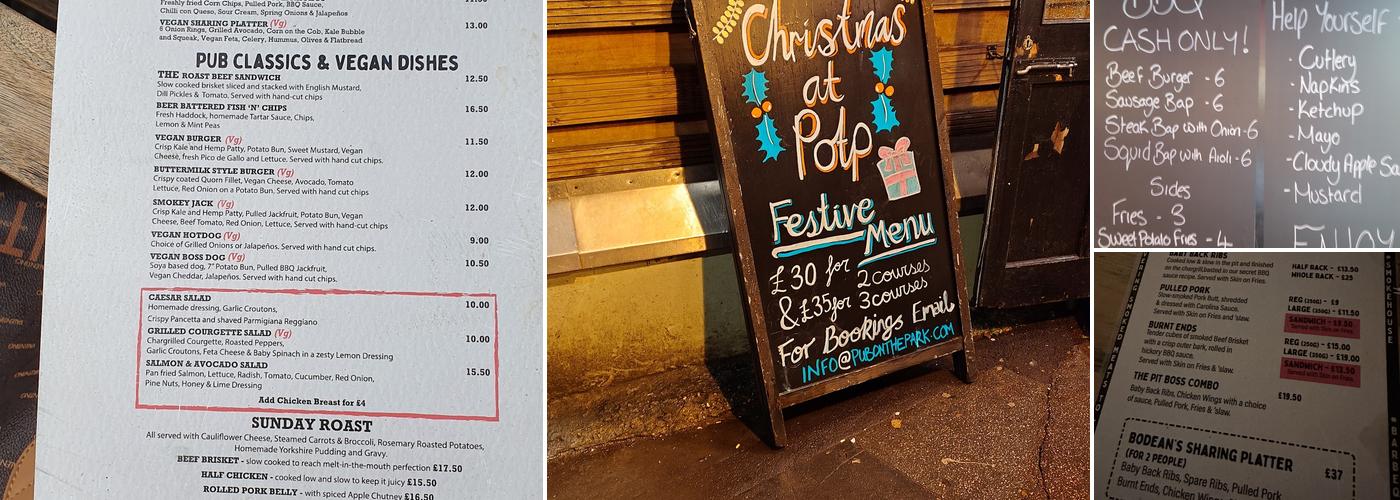 Freshly fried Corn Chips, Pulled Pork, BBQ Sauce,
Chilli con Queso, Sour Cream, Spring Onions & Jalapeños
VEGAN SHARING PLATTER (Vg) 13.00
6 Onion Rings, Grilled Avocado, Corn on the Cob, Kale Bubble
and Squeak, Vegan Feta, Celery, Hummus, Olives & Flatbread
PUB CLASSICS & VEGAN DISHES
THE ROAST BEEF SANDWICH 12.50
Slow cooked brisket sliced and stacked with English Mustard,
Dill Pickles & Tomato. Served with hand-cut chips
BEER BATTERED FISH 'N' CHIPS 16.50
Fresh Haddock, homemade Tartar Sauce, Chips,
Lemon & Mint Peas
VEGAN BURGER (Vg) 11.50
Crisp Kale and Hemp Patty, Potato Bun, Sweet Mustard, Vegan
Cheese, fresh Pico de Gallo and Lettuce. Served with hand cut chips.
BUTTERMILK STYLE BURGER (Vg) 12.00
Crispy coated Quorn Fillet, Vegan Cheese, Avocado, Tomato
Lettuce, Red Onion on a Potato Bun, Served with hand cut chips
SMOKEY JACK (Vg) 12.00
Crisp Kale and Hemp Patty, Pulled Jackfruit, Potato Bun, Vegan
Cheese, Beef Tomato, Red Onion, Lettuce, Served with hand-cut chips
VEGAN HOTDOG (Vg) 9.00
Choice of Grilled Onions or Jalapeños. Served with hand cut chips.
VEGAN BOSS DOG (Vg) 10.50
Soya based dog, 7" Potato Bun, Pulled BBQ Jackfruit,
Vegan Cheddar, Jalapeños. Served with hand cut chips.
CAESAR SALAD 10.00
Homemade dressing, Garlic Croutons,
Crispy Pancetta and shaved Parmigiana Reggiano
GRILLED COURGETTE SALAD (Vg) 10.00
Chargrilled Courgette, Roasted Peppers,
Garlic Croutons, Feta Cheese & Baby Spinach in a zesty Lemon Dressing
SALMON & AVOCADO SALAD 15.50
Pan fried Salmon, Lettuce, Radish, Tomato, Cucumber, Red Onion,
Pine Nuts, Honey & Lime Dressing
Add Chicken Breast for £4
SUNDAY ROAST
All served with Cauliflower Cheese, Steamed Carrots & Broccoli, Rosemary Roasted Potatoes,
Homemade Yorkshire Pudding and Gravy.
BEEF BRISKET - slow cooked to reach melt-in-the-mouth perfection £17.50
HALF CHICKEN - cooked low and slow to keep it juicy £15.50
ROLLED PORK BELLY - with spiced Apple Chutney £16.50
Christmas
at
Potp
Festive
Menu
£30 for 2 courses
& £35 for 3 courses
For Bookings Email
INFO@PUBONTHEPARK.COM
BBQ
CASH ONLY!
Beef Burger - 6
Sausage Bap - 6
Steak Bap with Onion - 6
Squid Bap with Aioli - 6
Sides
Fries - 3
Sweet Potato Fries - 4
Help Yourself
- Cutlery
- Napkins
- Ketchup
- Mayo
- Cloudy Apple Sa
- Mustard
ENJOY
BABY BACK RIBS
Cooked low & slow in the pit and finished
on the chargrill, basted in our secret BBQ
sauce recipe. Served with Fries & 'slaw.
HALF BACK - £13.50
WHOLE BACK - £25
PULLED PORK
Slow-smoked Pork Butt, shredded
& dressed with Carolina Sauce.
Served with Skin on Fries and 'slaw.
REG (250G) - £9
LARGE (350G) - £11.50
SANDWICH - £9.50
Served with Skin on Fries.
BURNT ENDS
Tender cubes of smoked Beef Brisket
with a crisp outer bark, rolled in
hickory BBQ sauce.
Served with Skin on Fries & 'slaw.
REG (250G) - £15.00
LARGE (350G) - £19.00
SANDWICH - £13.50
Served with Skin on Fries.
THE PIT BOSS COMBO £19.50
Baby Back Ribs, Chicken Wings with a choice
of sauce, Pulled Pork, Fries & 'slaw.
BODEAN'S SHARING PLATTER £37
(FOR 2 PEOPLE)
Baby Back Ribs, Spare Ribs, Pulled Pork
Burnt Ends, Chicken Wings